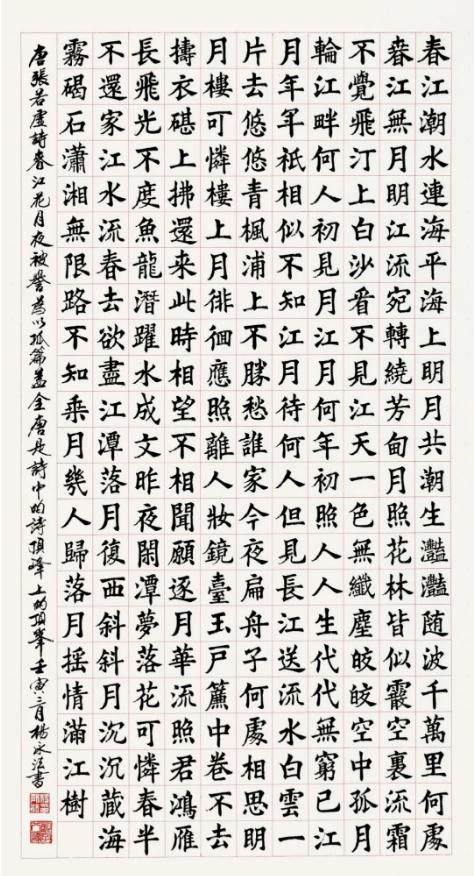 春江潮水連海平海上明月共潮生灩灩随波千萬里何處
春江無月明江流宛轉繞芳甸月照花林皆似霰空裏流霜
不覺飛汀上白沙看不見江天一色無纖塵皎皎空中孤月
輪江畔何人初見月江月何年初照人人生代代無窮已江
月年年祇相似不知江月待何人但見長江送流水白雲一
片去悠悠青楓浦上不勝愁誰家今夜扁舟子何處相思明
月樓可憐樓上月徘徊應照離人妝鏡臺玉戶簾中卷不去
擣衣碪上拂還來此時相望不相聞願逐月華流照君鴻雁
長飛光不度魚龍潛躍水成文昨夜閑潭夢落花可憐春半
不還家江水流春去欲盡江潭落月復西斜斜月沉沉藏海
霧碣石瀟湘無限路不知乘月幾人歸落月摇情滿江樹
唐張若虛詩春江花月夜被譽為以孤篇蓋全唐是詩中的詩頂峰上的頂峯壬寅二月楊永法書